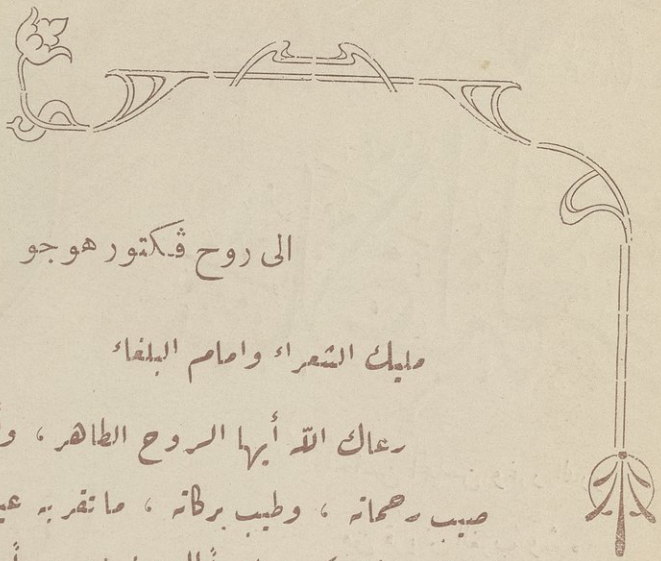 الى روح ڤكتور هوجو
مليك الشعراء وامام البلغاء
رعاك الله أيها الروح الطاهر ،
صيب رحماته ، وطيب بركاته ، ما تقر به